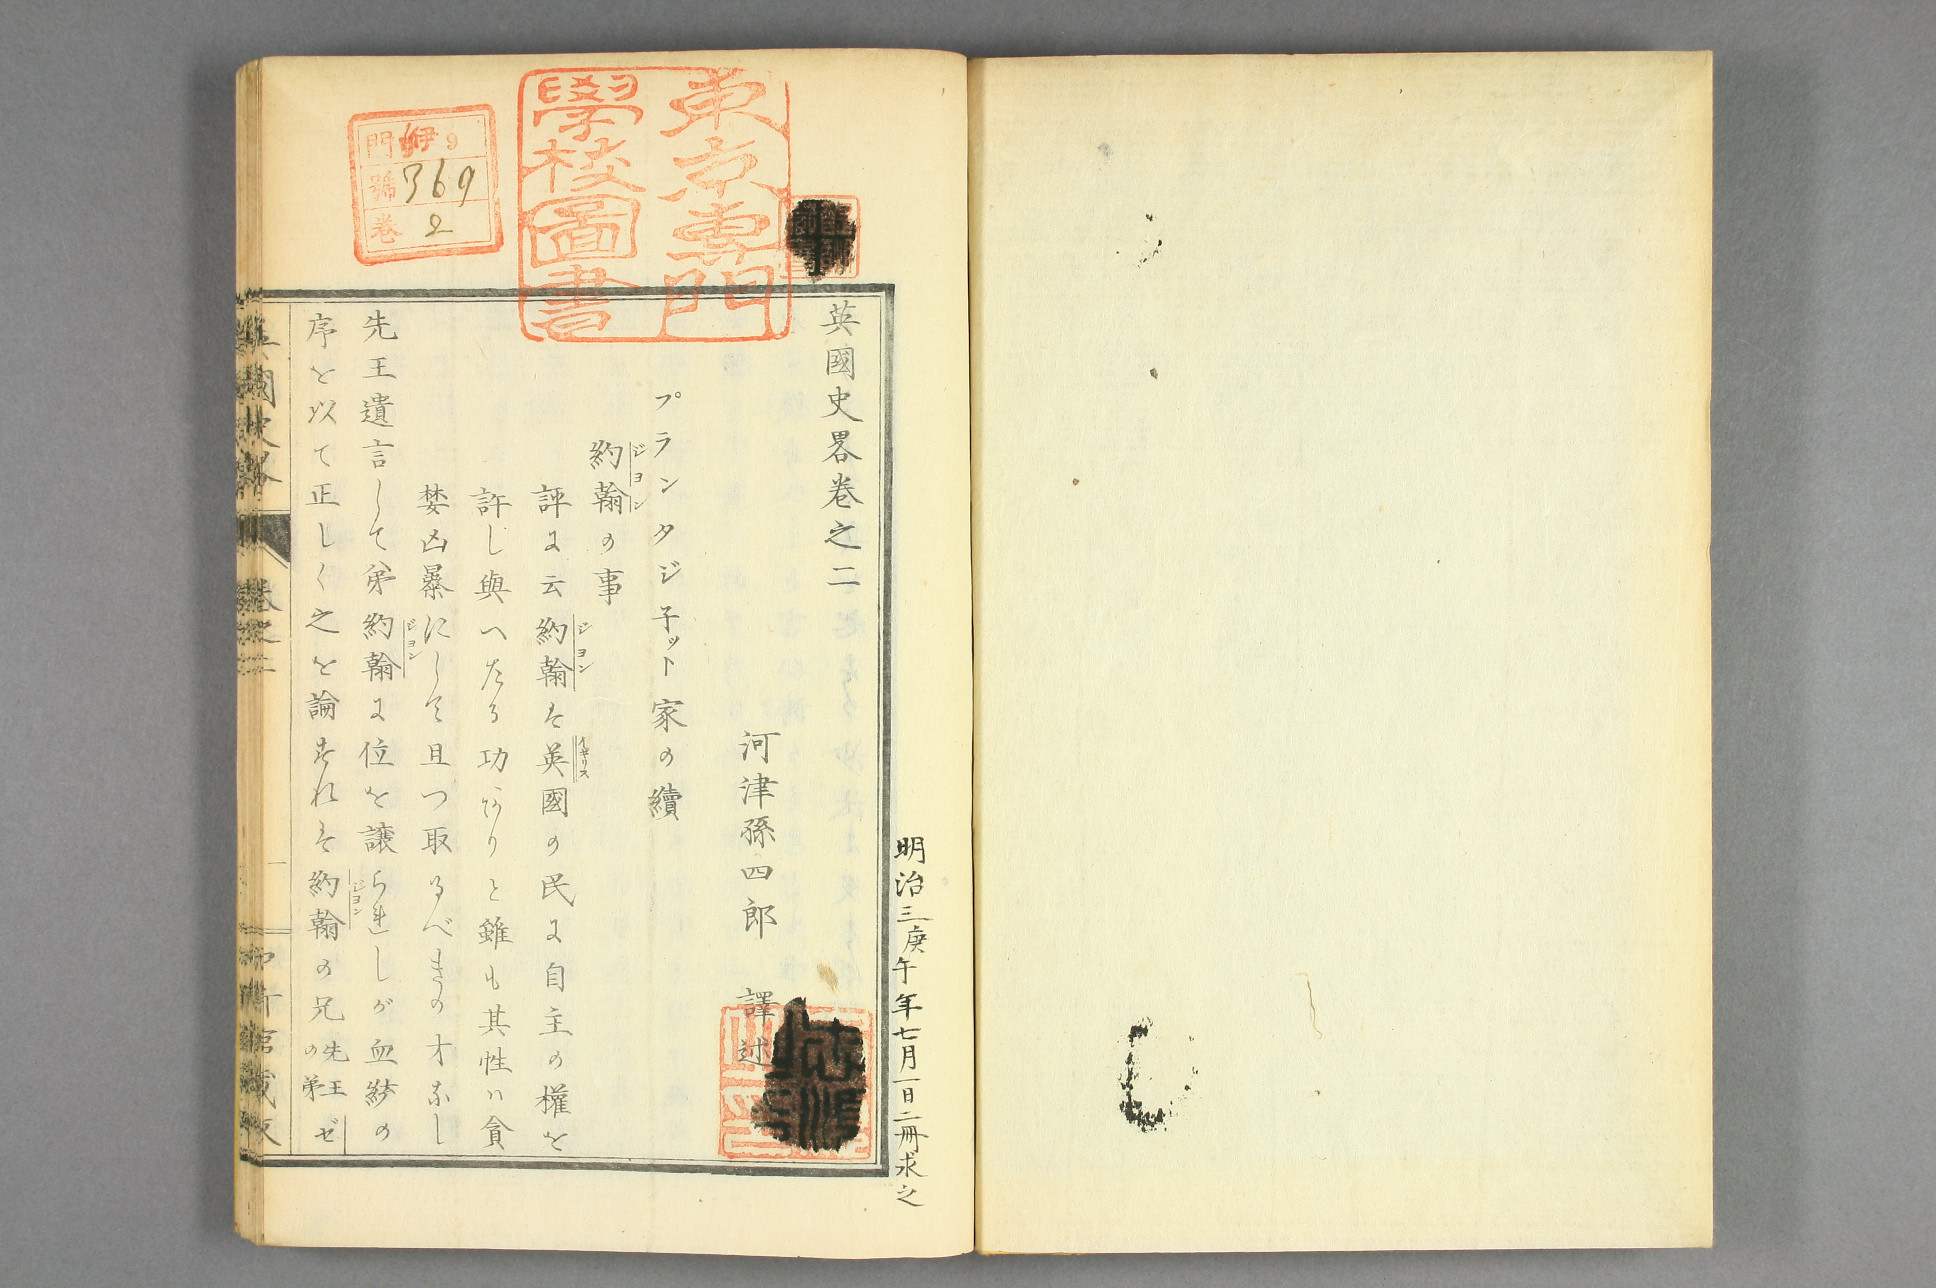 明治三庚午年七月一日二冊求之
英國史畧卷之二
河津孫四郎 譯述
プランタジ子ット家の續
約翰の事
ジヨン
評に云約翰ハ英國の民に自主の權を
ジヨン イギリス
許し與へたる功ありと雖も其性ハ貪
婪凶暴にして且つ取るべきの才なし
先王遺言して弟約翰に位を譲られしが血統の
ジヨン
序を以て正しく之を論ずれバ約翰の兄先王の弟ゼ
ジヨン
英國史畧 卷之二 一
東京專門
學校圖書
門 伊 9
號 369
卷 2